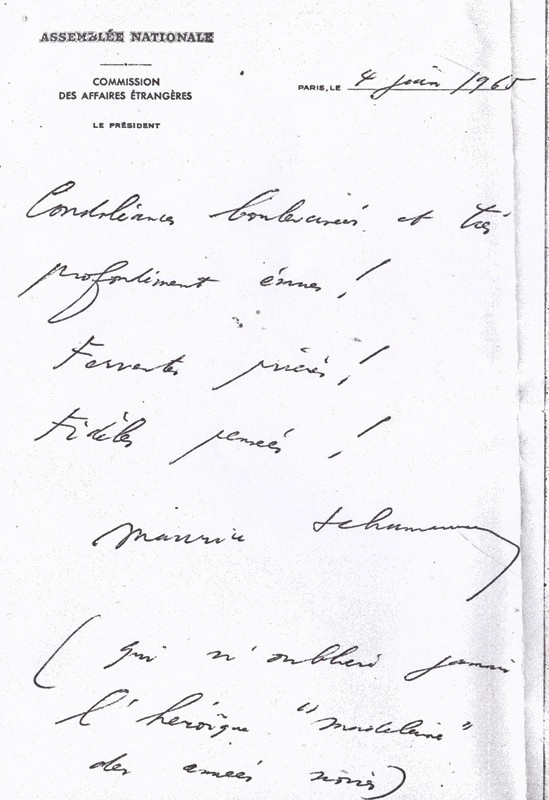 ASSEMBLÉE NATIONALE
COMMISSION
DES AFFAIRES ÉTRANGÈRES
LE PRÉSIDENT
PARIS, LE 4 juin 1965
Condoléances bouleversées et très
profondément émues !
Ferventes prières !
Fidèles pensées !
Maurice Schumann
(qui n'oubliera jamais
l'héroïque "Madeleine"
des années noires)